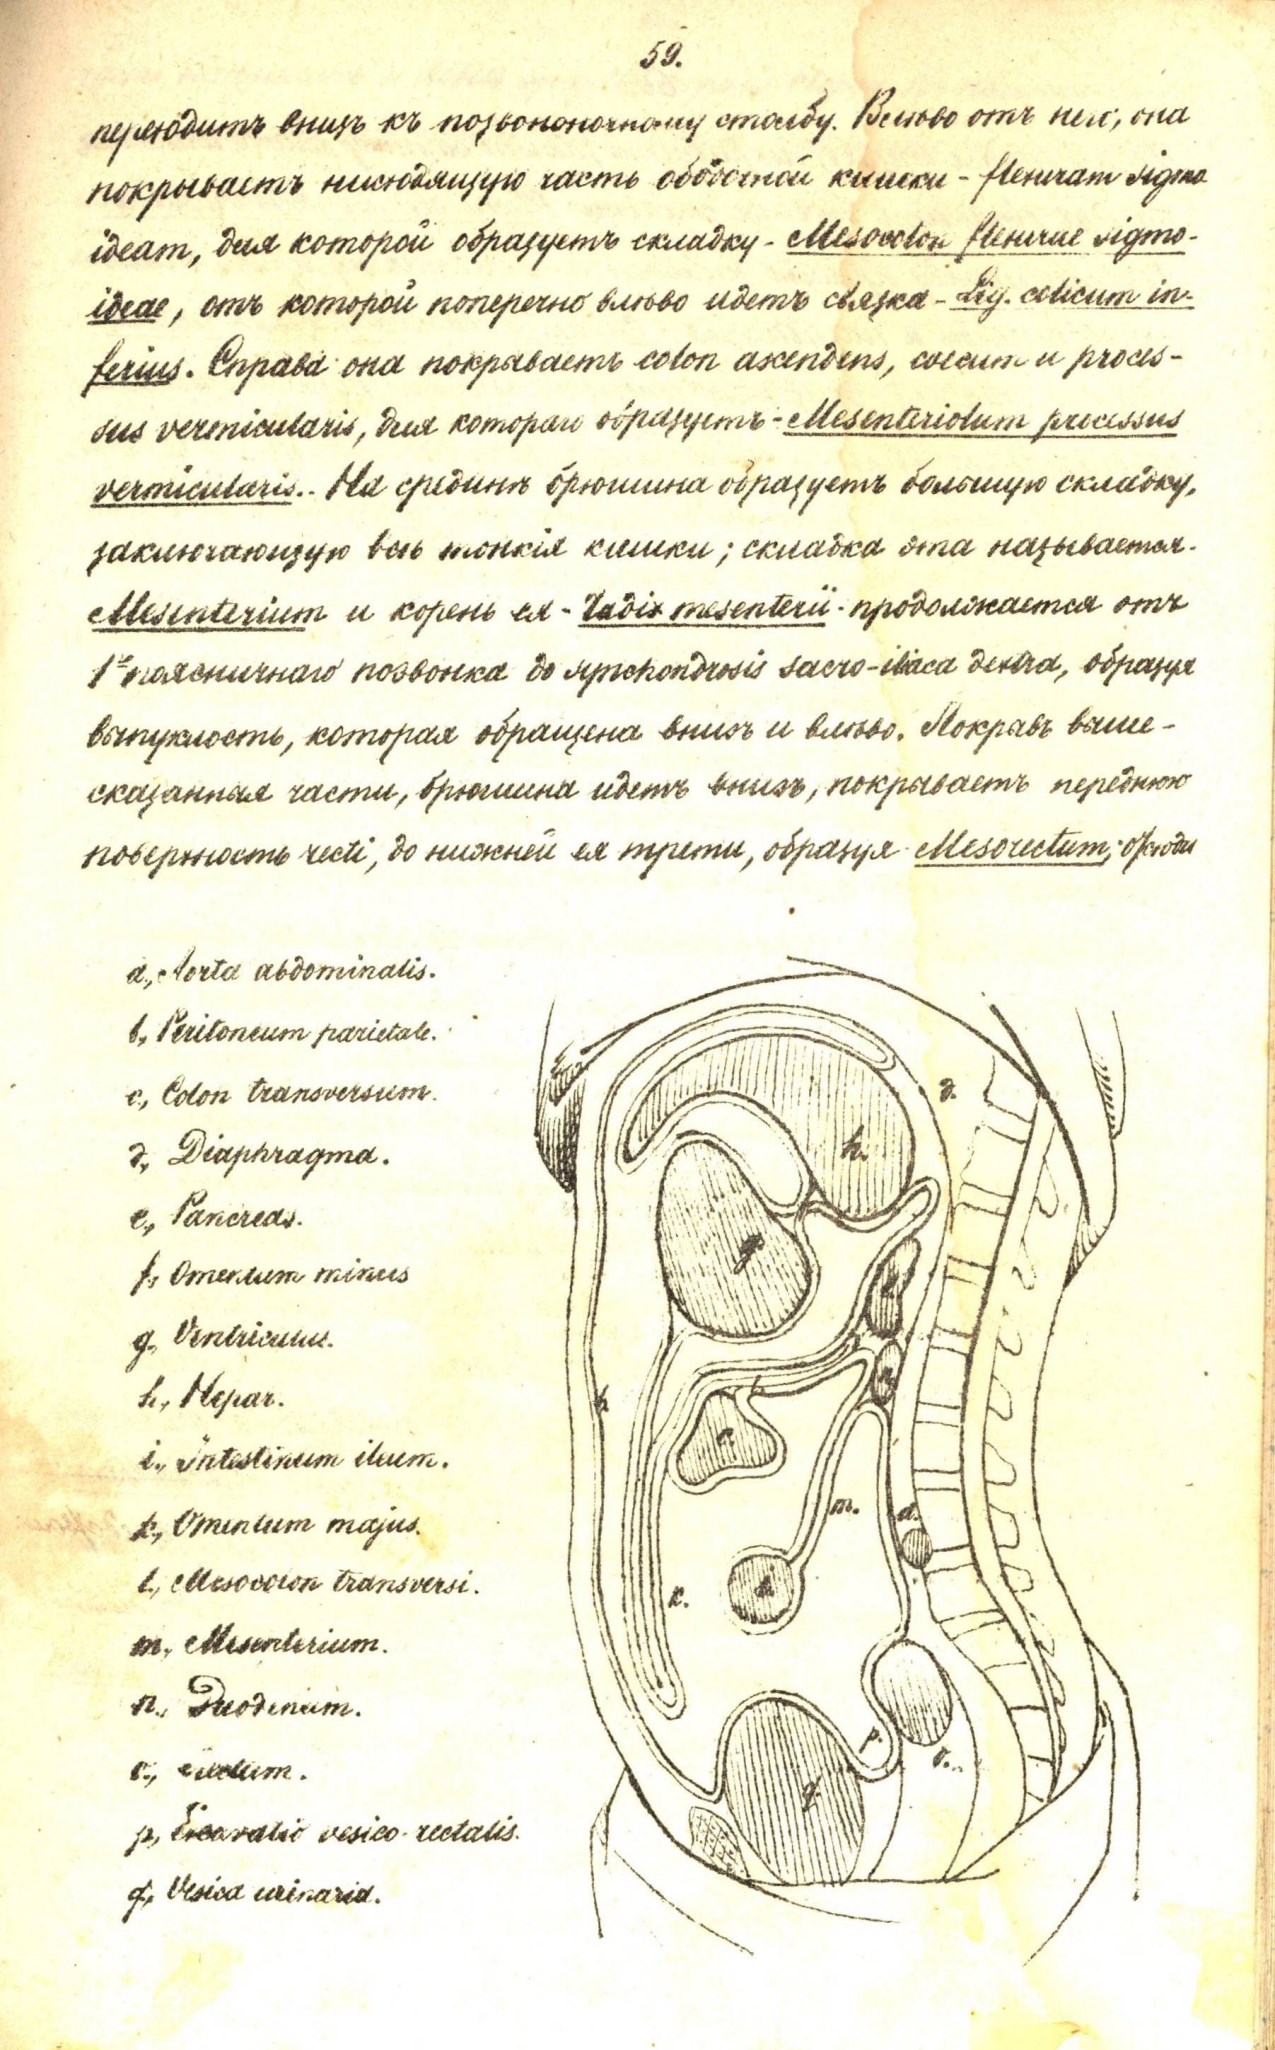 59.
переходитъ внизъ къ позвоночному столбу. Влѣво отъ нея, она
покрываетъ нисходящую часть ободочной кишки - flexuram sigmo
ideam, для которой образуетъ складку - Mesocolon flexurae sigmo-
ideae, отъ которой поперечно влѣво идетъ связка - Lig. colicum in-
ferius. Справа она покрываетъ colon ascendens, coecum и proces-
sus vermicularis, для котораго образуетъ - Mesenteriolum processus
vermicularis. На срединѣ брюшина образуетъ большую складку,
заключающую всѣ тонкія кишки; складка эта называется -
Mesenterium и корень ея - Radix mesenterii - продолжается отъ
1го поясничнаго позвонка до synchondrosis sacro-iliaca dextra, образуя
выпуклость, которая обращена внизъ и влѣво. Покрывъ выше-
сказанныя части, брюшина идетъ внизъ, покрываетъ переднюю
поверхность recti, до нижней ея трети, образуя Mesorectum; отсюда
a, Aorta abdominalis.
b, Peritoneum parietale.
c, Colon transversum.
d, Diaphragma.
e, Pancreas.
f, Omentum minus
g, Ventriculus.
h, Hepar.
i, Intestinum ileum.
k, Omentum majus.
l, Mesocolon transversi.
m, Mesenterium.
n, Duodenum.
o, Rectum.
p, Excavatio vesico-rectalis.
q, Vesica urinaria.
d.
h.
g
m.
k.
p.
o.
q.